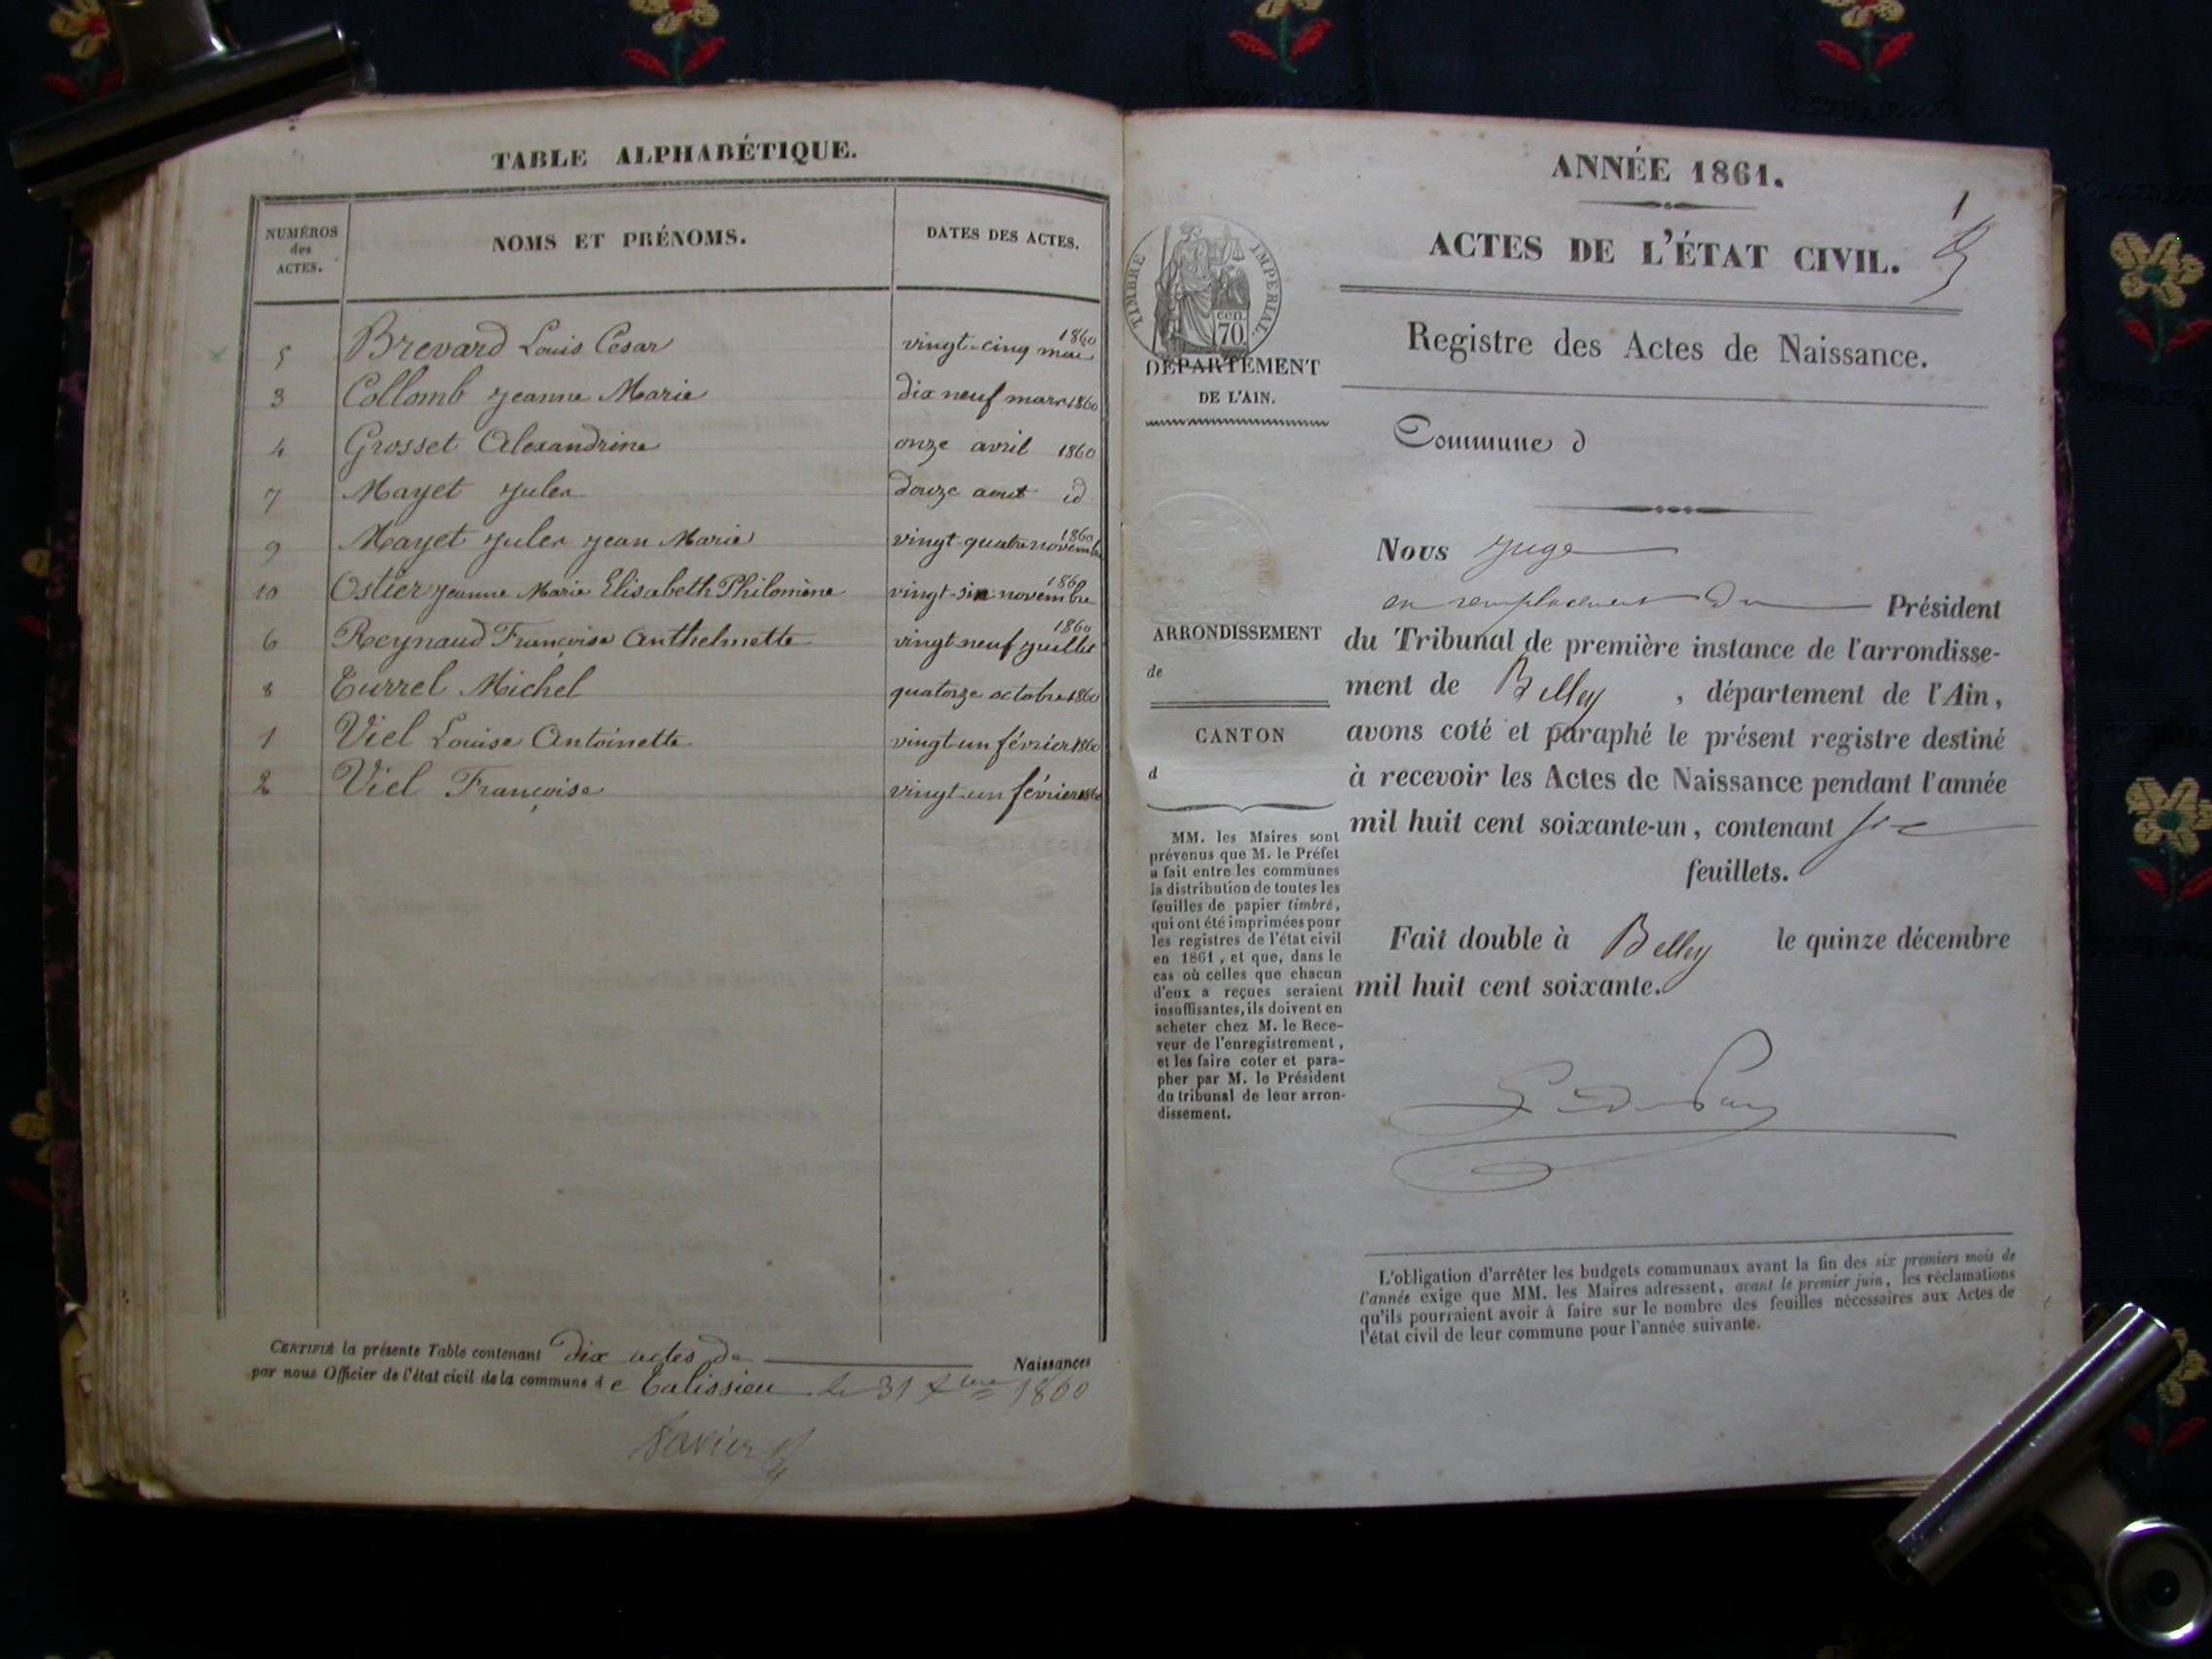 TABLE ALPHABÉTIQUE.
NUMÉROS des ACTES.
NOMS ET PRÉNOMS.
DATES DES ACTES.
5 Brevard Louis Cesar vingt-cinq mai 1860
3 Collomb Jeanne Marie dix neuf mars 1860
4 Grosset Alexandrine onze avril 1860
7 Mayet Jules douze aout id
9 Mayet Jules Jean Marie vingt-quatre novembre 1860
10 Ostier Jeanne Marie Elisabeth Philomène vingt-six novembre 1860
6 Reynaud Françoise Anthelmette vingt neuf juillet 1860
8 Turrel Michel quatorze octobre 1860
1 Viel Louise Antoinette vingt-un février 1860
2 Viel Françoise vingt-un février 1860
CERTIFIÉ la présente Table contenant dix actes de Naissances
par nous Officier de l'état civil de la commune de Talissieu le 31 Xbre 1860
ANNÉE 1861.
1
ACTES DE L'ÉTAT CIVIL.
TIMBRE IMPÉRIAL.
cen.
70
DÉPARTEMENT
DE L'AIN.
Registre des Actes de Naissance.
Commune d
Nous Juge
en remplacement du Président
du Tribunal de première instance de l'arrondisse-
ment de Belley, département de l'Ain,
avons coté et paraphé le présent registre destiné
à recevoir les Actes de Naissance pendant l'année
mil huit cent soixante-un, contenant
feuillets.
Fait double à Belley le quinze décembre
mil huit cent soixante.
ARRONDISSEMENT
de
CANTON
d
MM. les Maires sont
prévenus que M. le Préfet
a fait entre les communes
la distribution de toutes les
feuilles de papier timbré,
qui ont été imprimées pour
les registres de l'état civil
en 1861, et que, dans le
cas où celles que chacun
d'eux a reçues seraient
insuffisantes, ils doivent en
acheter chez M. le Rece-
veur de l'enregistrement,
et les faire coter et para-
pher par M. le Président
du tribunal de leur arron-
dissement.
L'obligation d'arrêter les budgets communaux avant la fin des six premiers mois de
l'année exige que MM. les Maires adressent, avant le premier juin, les réclamations
qu'ils pourraient avoir à faire sur le nombre des feuilles nécessaires aux Actes de
l'état civil de leur commune pour l'année suivante.